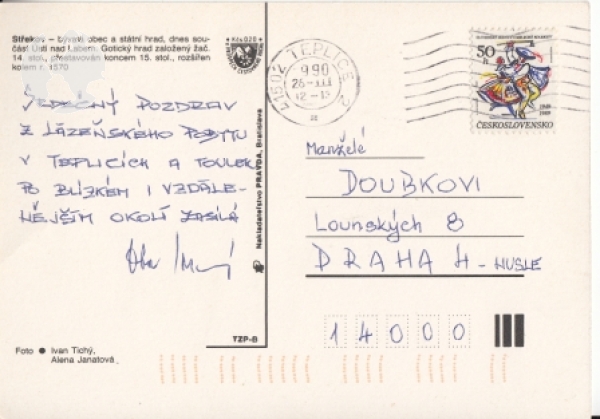 Střekov – bývalá obec a státní hrad, dnes sou-
část Ústí nad Labem. Gotický hrad založený zač.
14. stol., přestavován koncem 15. stol., rozšířen
kolem r. 1570
Kčs 0,20
41502 TEPLICE 2
990
26.III
12-13
SLOVENSKÝ
50 h
1949
1989
ČESKOSLOVENSKO
VDĚČNÝ POZDRAV
Z LÁZEŇSKÉHO POBYTU
V TEPLICÍCH A TOULEK
PO BLÍZKÉM I VZDÁLE-
NĚJŠÍM OKOLÍ ZASÍLÁ
Nakladatelstvo PRAVDA, Bratislava
Manželé
DOUBKOVI
Lounských 8
PRAHA 4 - NUSLE
14000
TZP-B
Foto ● Ivan Tichý,
Alena Janatová